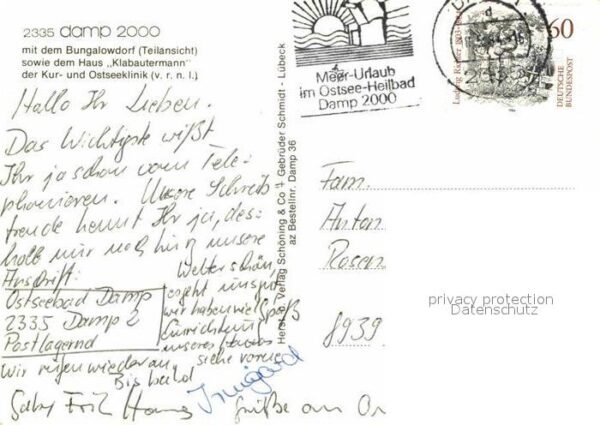 2335 damp 2000
mit dem Bungalowdorf (Teilansicht)
sowie dem Haus „Klabautermann"
der Kur- und Ostseeklinik (v. r. n. l.)
Hallo Ihr Lieben.
Das Wichtigste wißt
Ihr ja schon vom Tele-
phonieren. Unsere Schreib
freude kennt Ihr ja, des-
halb nur noch kurz unsere
Anschrift:
Ostseebad Damp
2335 Damp 2
Postlagernd
Wetter schön,
es geht uns gut
wir haben viel Spaß
Einrichtung
unseres Hauses
siehe vorne
Wir rufen wieder an,
Bis bald
Gaby Fritz Hans Irmgard
Grüße an
Verlag Schöning & Co + Gebrüder Schmidt - Lübeck
az Bestellnr. Damp 36
Meer-Urlaub
im Ostsee-Heilbad
Damp 2000
60
DEUTSCHE
BUNDESPOST
Fam.
Anton
Rosen
8939
privacy protection
Datenschutz